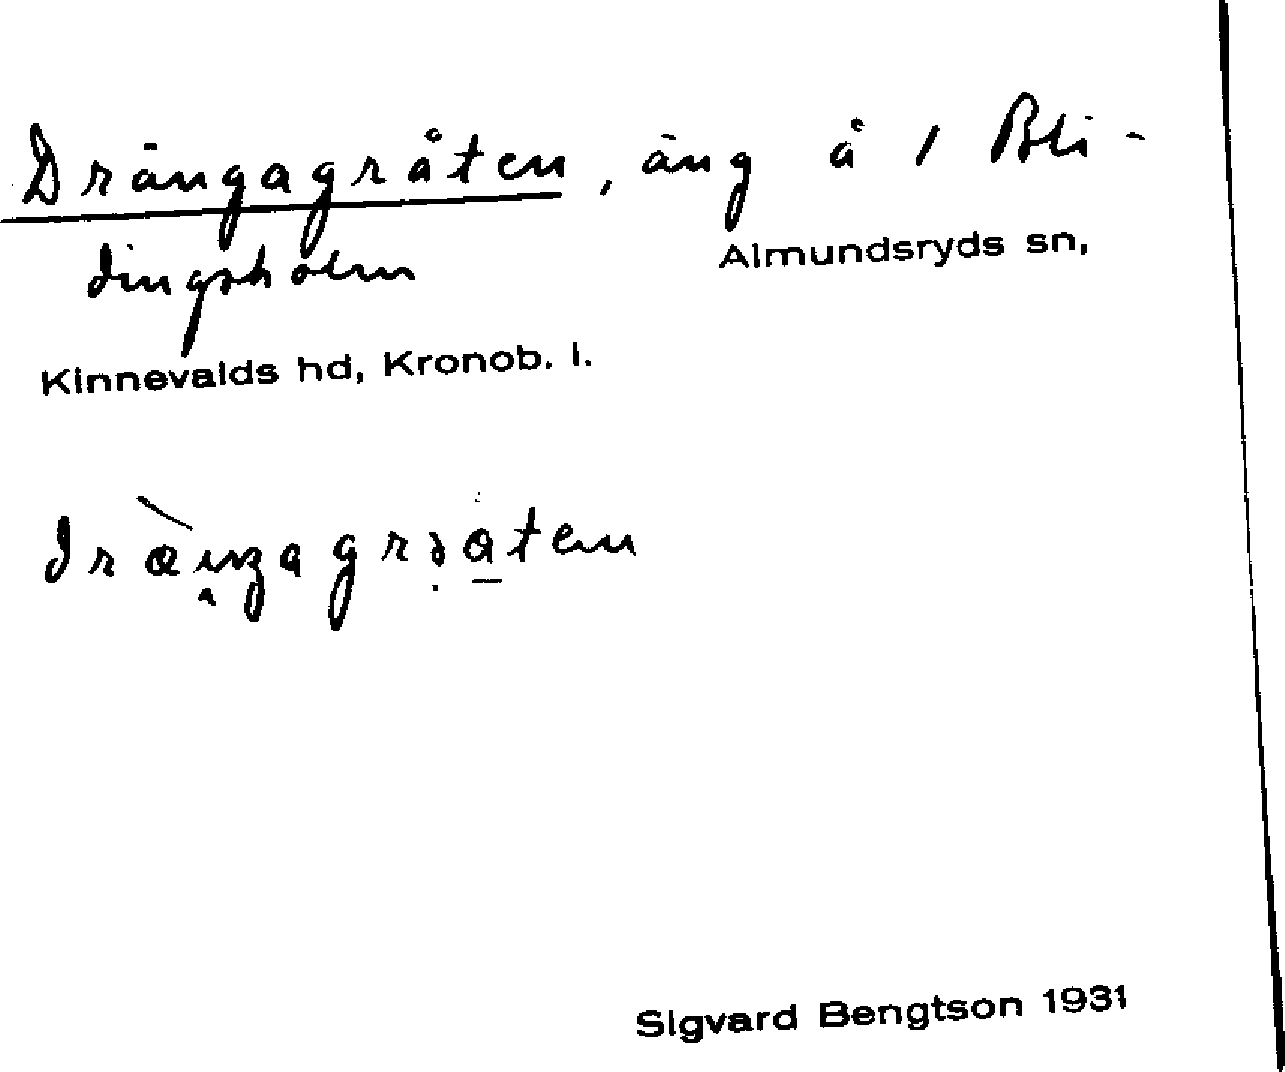 Drängagråten, äng å 1 Bli-
dingsholm Almundsryds sn,
Kinnevalds hd, Kronob. l.
Sigvard Bengtson 1931